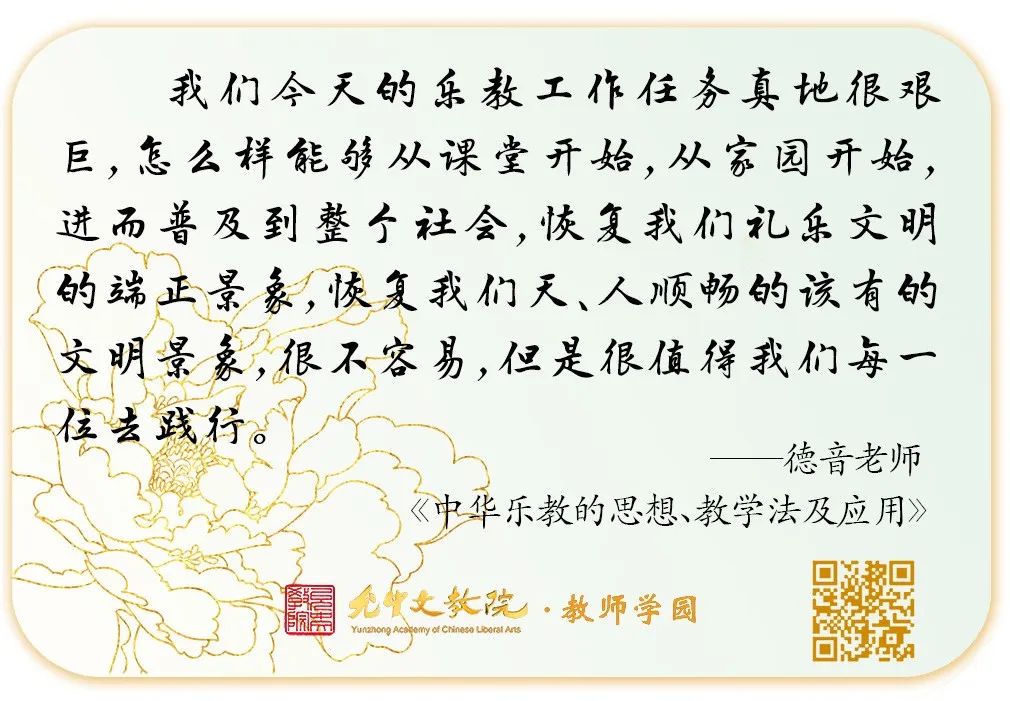 我们今天的乐教工作任务真地很艰
巨，怎么样能够从课堂开始，从家园开始，
进而普及到整个社会，恢复我们礼乐文明
的端正景象，恢复我们天、人顺畅的该有的
文明景象，很不容易，但是很值得我们每一
位去践行。
——德音老师
《中华乐教的思想、教学法及应用》
允中文教院·教师学园
Yunzhong Academy of Chinese Liberal Arts